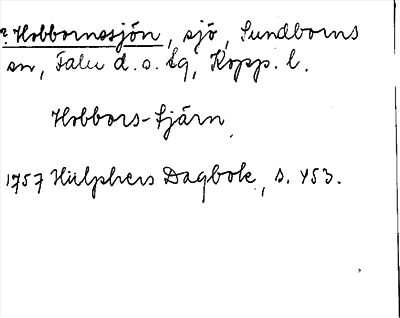 ? Hobbornssjön, sjö, Sundborns
sn, Falu d. o. tg, Kopp. l.
Hobbors-tjärn.
1757 Hülphers Dagbok, s. 453.